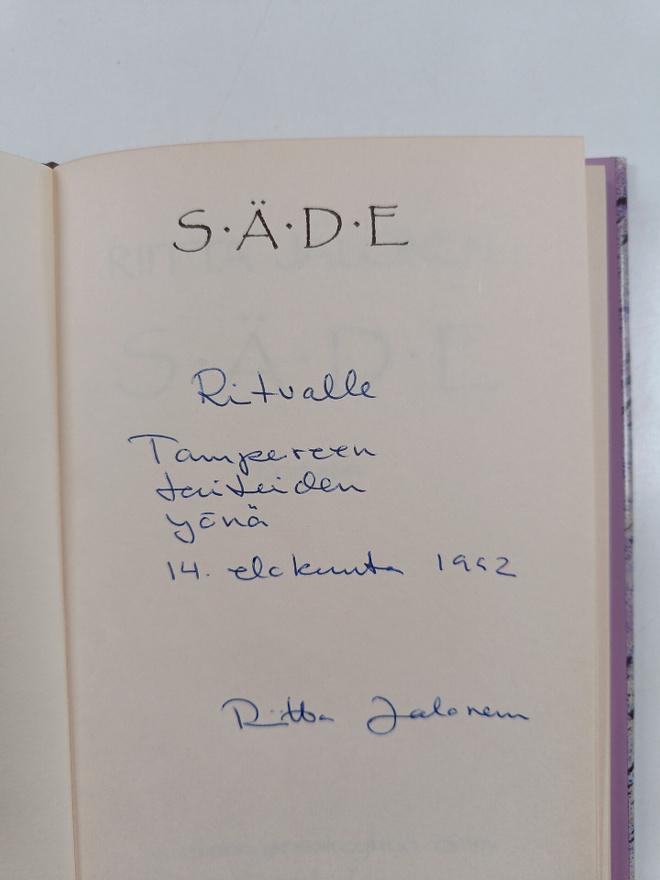 S·Ä·D·E
Ritvalle
Tampereen
taiteiden
yönä
14. elokuuta 1992
Riitta Jalonen